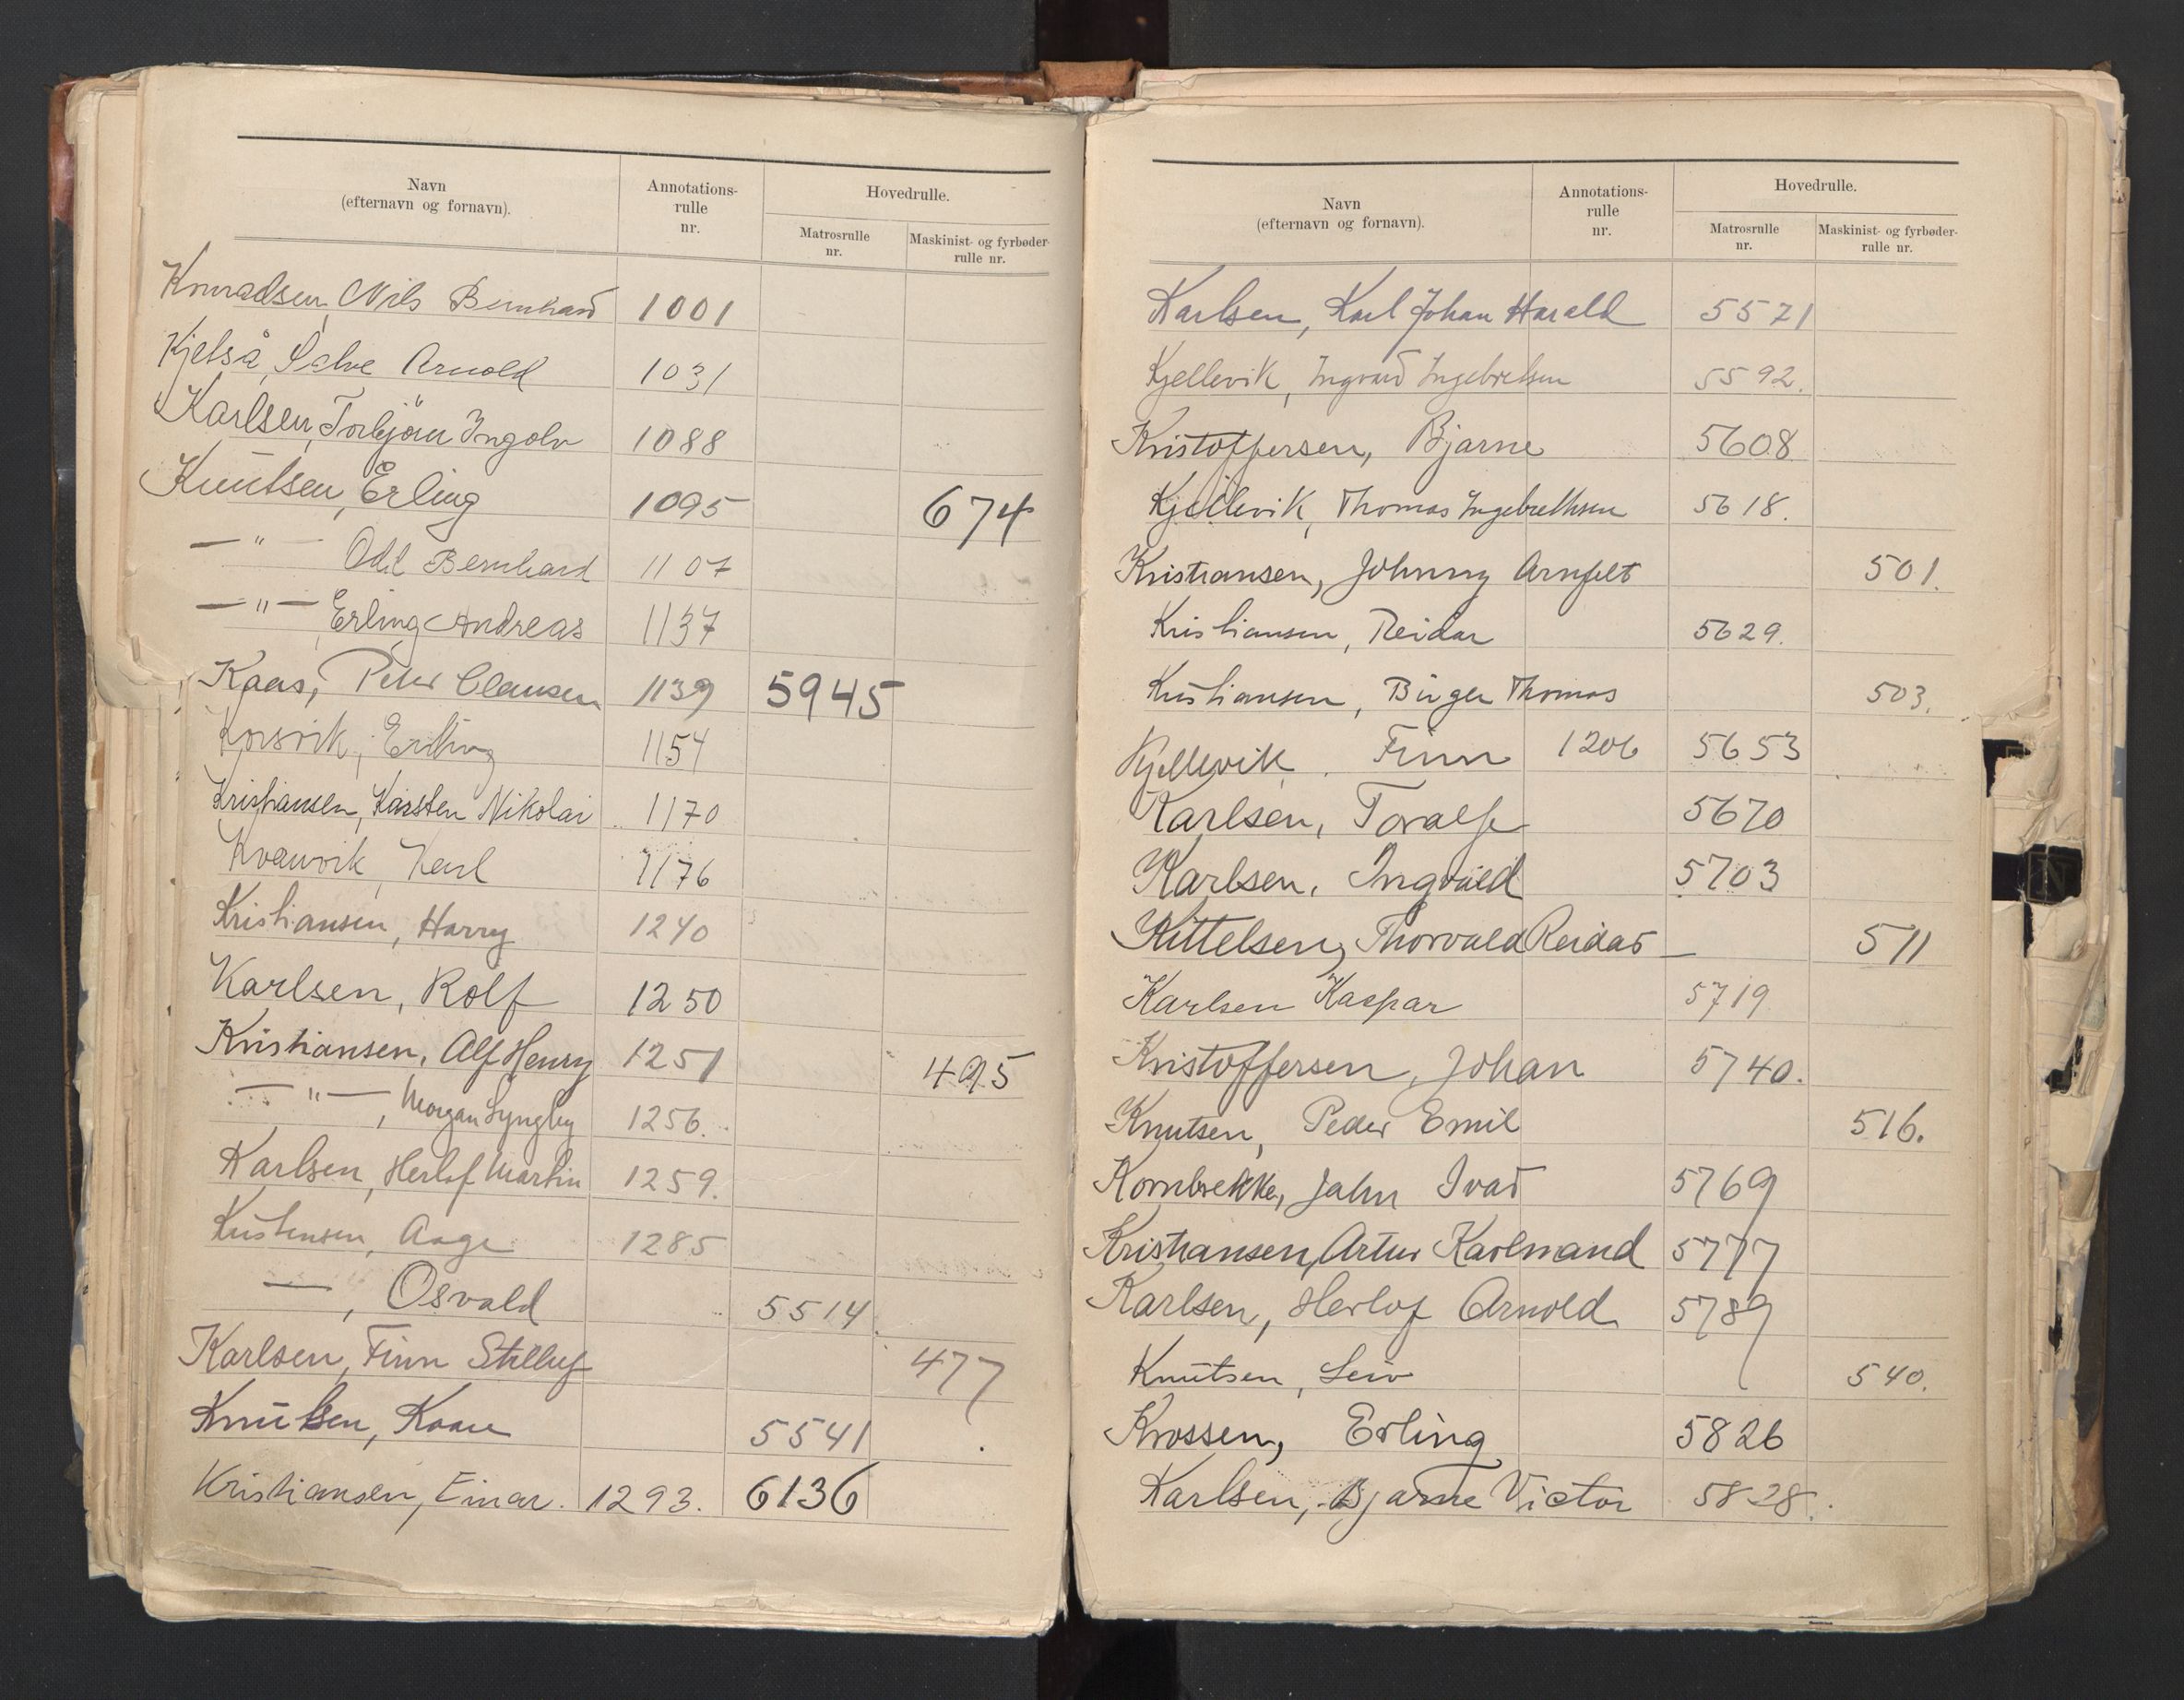 Navn
(efternavn og fornavn).
Annotations-
rulle
nr.
Hovedrulle.
Matrosrulle
nr.
Maskinist- og fyrbøder-
rulle nr.
Konradsen, Nils Bernhard 1001
Kjelså, Salve Arnold 1031
Karlsen, Torbjörn Ingolv 1088
Knutsen, Erling 1095 674
—"— Odd Bernhard 1107
—"— Erling Andreas 1137
Kaas, Peter Clausen 1139 5945
Korsvik, Erling 1154
Kristiansen, Karsten Nikolai 1170
Kvanvik, Karl 1176
Kristiansen, Harry 1240
Karlsen, Rolf 1250
Kristiansen, Alf Henry 1251 495
—"—, Morgan Lyngby 1256.
Karlsen, Herlof Martin 1259.
Kristensen, Aage 1285
—, Osvald 5514.
Karlsen, Finn 477
Knutsen, Kaare 5541
Kristiansen, Einar. 1293. 6136
Navn
(efternavn og fornavn).
Annotations-
rulle
nr.
Hovedrulle.
Matrosrulle
nr.
Maskinist- og fyrbøder-
rulle nr.
Karlsen, Karl Johan Harald 5571
Kjellevik, Ingvard Ingebretsen 5592.
Kristoffersen, Bjarne 5608
Kjellevik, Thomas Ingebrethsen 5618.
Kristiansen, Johnny Arnfelt 501.
Kristiansen, Reidar 5629.
Kristiansen, Birger Thomas 503.
Kjellevik, Finn 1206 5653
Karlsen, Toralf 5670
Karlsen, Ingvald 5703
Kittelsen, Thorvald Reidar — 511
Karlsen Kaspar 5719
Kristoffersen, Johan 5740.
Knutsen, Peder Emil 516.
Kornbrekke, Jahn Ivar 5769
Kristiansen, Artur Karlmand 5777
Karlsen, Herlof Arnold 5789
Knutsen, Leiv 540.
Krossen, Erling 5826
Karlsen, Bjarne Victor 5828.